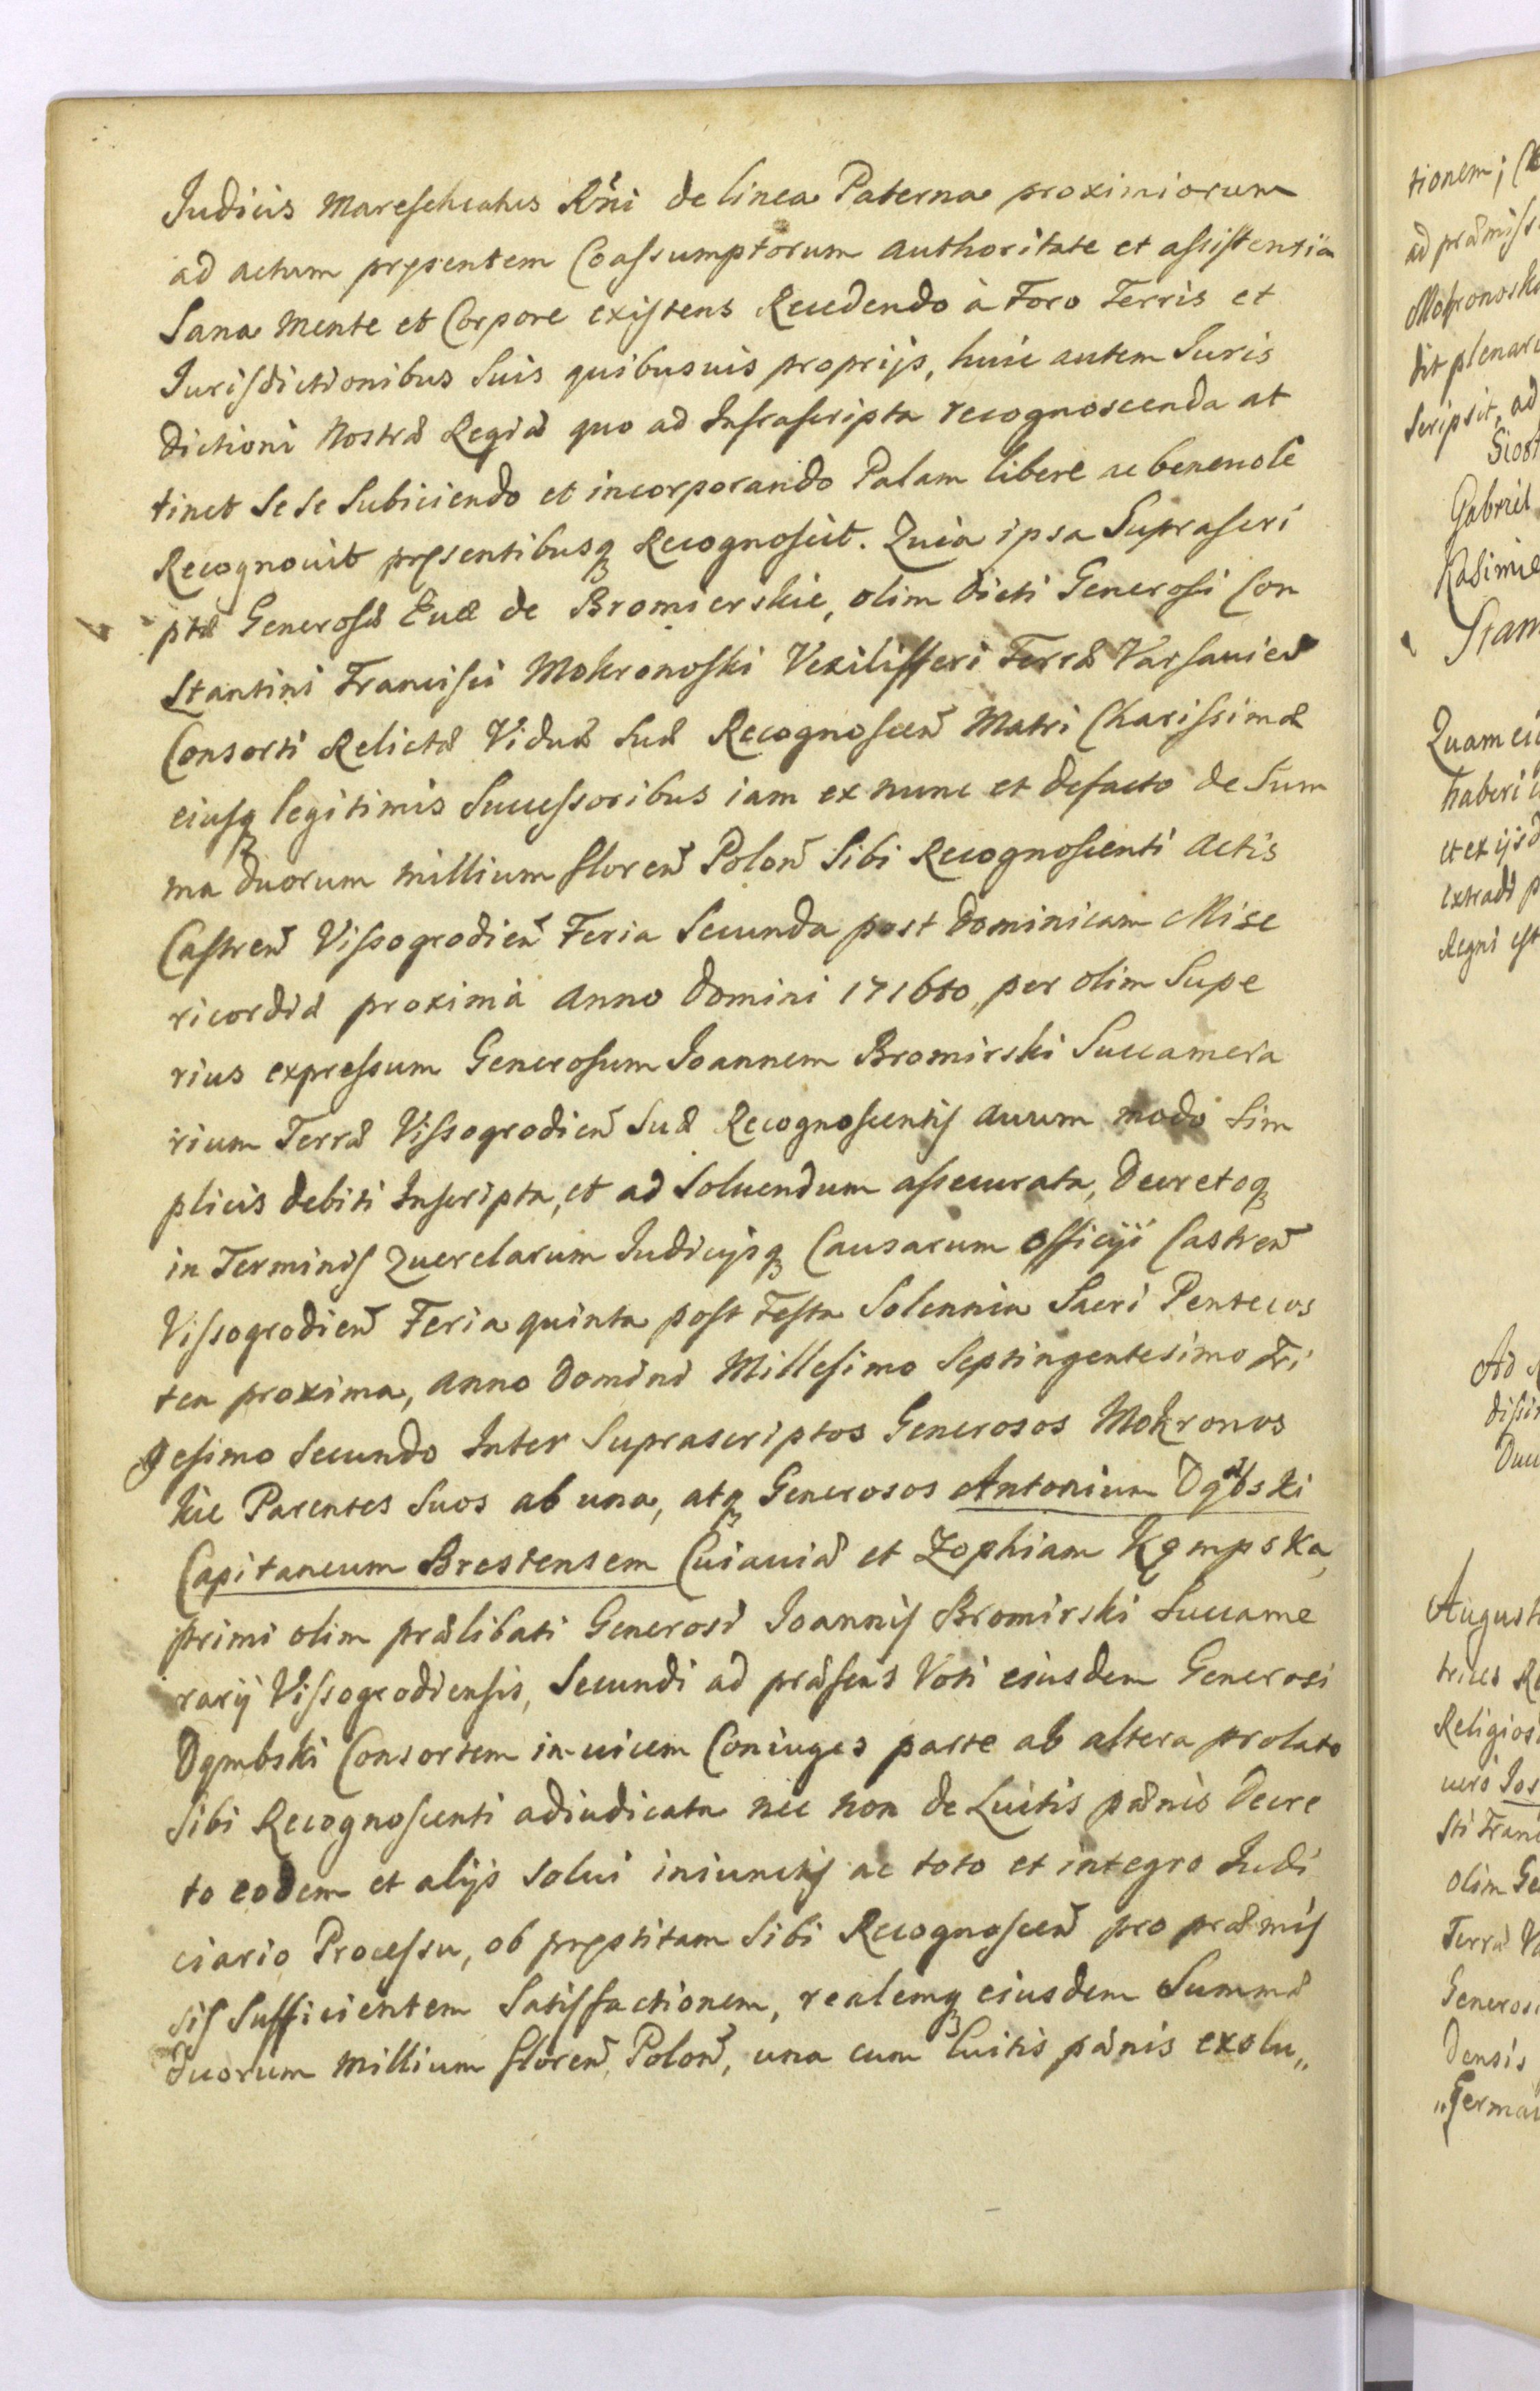 Judicis Mareschcatus Rñi de linea Paterna proximiorum
ad actum pręsentem Coassumptorum authoritate et assistentia
Sana mente et Corpore existens Recedendo à Foro Terris et
Jurisdictionibus Suis quibusuis proprijs, huic autem Juris
dictioni Nostræ Regiæ quo ad Infrascripta recognoscenda at
tinet Se Se Subiciendo et incorporando Palam libere ac beneuole
Recognouit pręsentibusq Recognoscit. Quia ipsa Suprascri
ptæ Generosæ Euæ de Bromierskie, olim dicti Generosi Con
stantini Francisci Mokronoski Vexilifferi Terræ Varsauien̄
Consorti Relictæ Viduæ Suæ Recognoscen̄ Matri Charissimæ
eiusq legitimis Successoribus iam ex nunc et defacto de Sum
ma duorum millium floren̄ Polon̄ Sibi Recognoscenti Actis
Castren̄ Vissogrodien̄ Feria Secunda post Dominicam Mise
ricordiæ proximà anno Domini 1716to, per olim Supe
rius expressum Generosum Joannem Bromirski Succamera
rium Terræ Vissogrodien̄ Suæ Recognoscentis auum modo Sim
plicis debiti Inscripta, et ad Soluendum assecurata, Decretoq
in Terminis Querelarum Judicijsq Causarum Officij Castren̄
Vissogrodien̄ Feria quinta post Festa Solennia Sacri Pentecos
tea proxima, anno Domini Millesimo Septingentesimo Tri
gesimo Secundo Inter Suprascriptos Generosos Mokronos
kie Parentes Suos ab una, atq Generosos Antonium Dąbski
Capitaneum Brestensem Cuiauiæ et Zophiam Kęmpska,
primi olim prælibati Generosi Joannis Bromirski Succame
rarij Vissogrodiensis, Secundi ad præsens Voti eiusdem Generosi
Dąmbski Consortem in-uicem Coniuges parte ab altera prolato
Sibi Recognoscenti adiudicata nec non de Luitis pænis Decre
to eodem et alijs Solui iniunctis ac toto et integro Judi
ciario Processu, ob pręstitam Sibi Recognoscen̄ pro præmis
sis Sufficientem Satisfactionem, realemq eiusdem Summæ
duorum millium floren̄ Polon̄, una cum luitis pænis exolu„
tionem;
ad præmiss
Mokronosk
dit plenar
Scripsit, ad
Gabriel
Kasimie
Stan
Quam
haberi
et ex ijsd
extradi p
Regni est
Ad
Duc
August
trices Re
Religios
uero Jos
sti Franc
olim Ge
Terræ Va
Generos
densis
„Germa